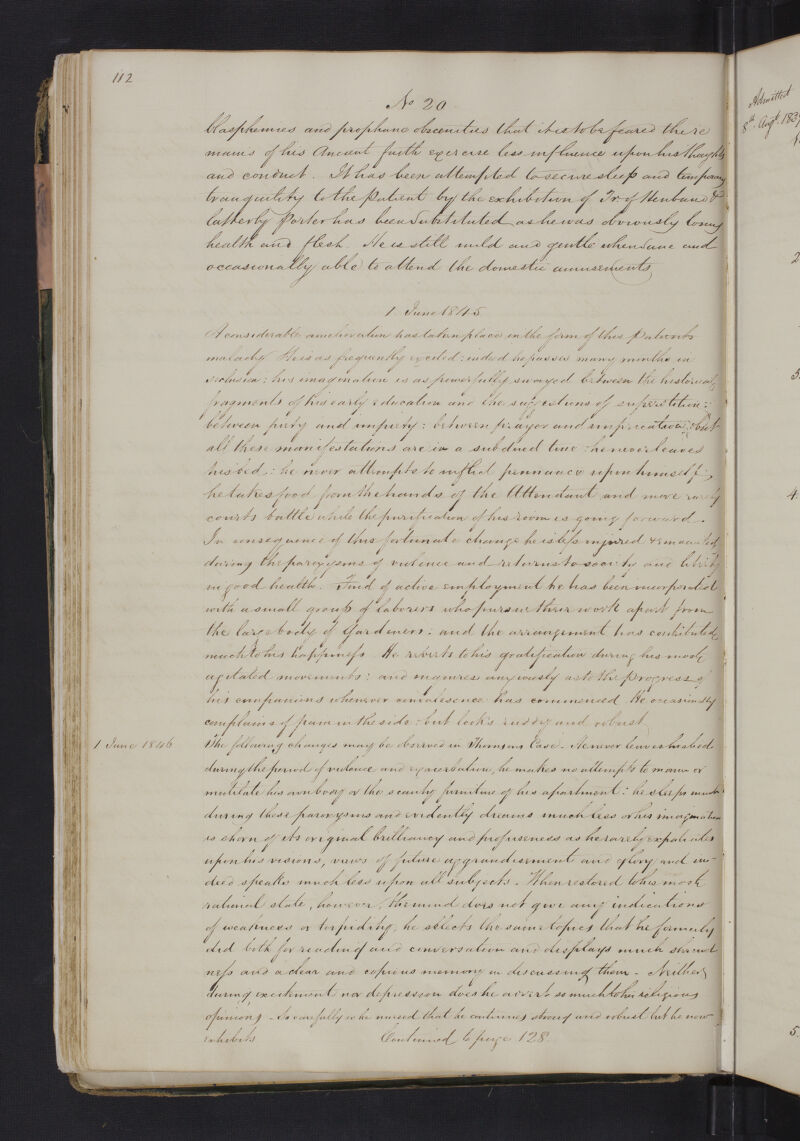 112
No 20
blasphemies and prophane obscenities that it is to be feared the re
mains of his Ancient faith exercise less influence upon his thoughts
and conduct. It has been attempted to secure sleep and temporary
tranquility to the Patient by the exhibition of Tr. of Henbane &
latterly Porter has been substituted as he was obviously losing
health and flesh. He is still mild and gentle when sane and
occasionally able to attend the domestic amusements
1 June 1845
A considerable amelioration has taken place in the form of this Patients
malady. He is as frequently excited: indeed he passes many months in
seclusion: his imagination is as powerfully swayed between the historical
fragments of his early education and the suggestions of superstition:
between piety and impiety: between prayer and imprecation: but
all these manifestations are in a subdued tone: he never leaves
his bed: he never attempts to inflict pennance upon himself;
he takes food from the hands of the Attendant and more rarely
courts battle while the purification of his room is going forward.
In consequence of this fortunate change he is less injured & emaciated
during the paroxysms of violence and returns to society and liberty
in good health. Fond of active employment he has been incorporated
with a small group of laborers who pursue their work apart from
the large body of Gardeners: and the arrangement has contributed
much to his happiness. He reverts to his gratification during his most
agitated movements: and inquires anxiously as to the Progress of
his companions whenever convalescence has commenced. He occasionally
complains of pain in the side: but looks ruddy and robust
1 June 1846
The following changes may be observed in Thomsons Case. He never leaves his bed
during the period of violence and exacerbation, he makes no attempts to maim or
mutilate his own body or the scanty furniture of his apartment: he sleeps much
during these paroxysms and evidently dreams much less or his imagination
is shorn of its original brilliancy and profuseness as he rarely expatiates
upon his visions, views of future aggrandisement and glory and in-
deed speaks much less upon all subjects. When restored to his most
rational state, however, the mind does not give any indications
of weakness or torpidity, he selects the same topics that he formerly
did both for reading and conversation and displays much shrewd
ness and a clear and copious memory in discussing them. Neither
during excitement nor depression does he advert so much to his religious
opinions. So carefully is he nursed that he continues strong and robust but he now
exhibits
Continued to page 128
Admitted
8th Augt. 183
2
3.
4.
5.